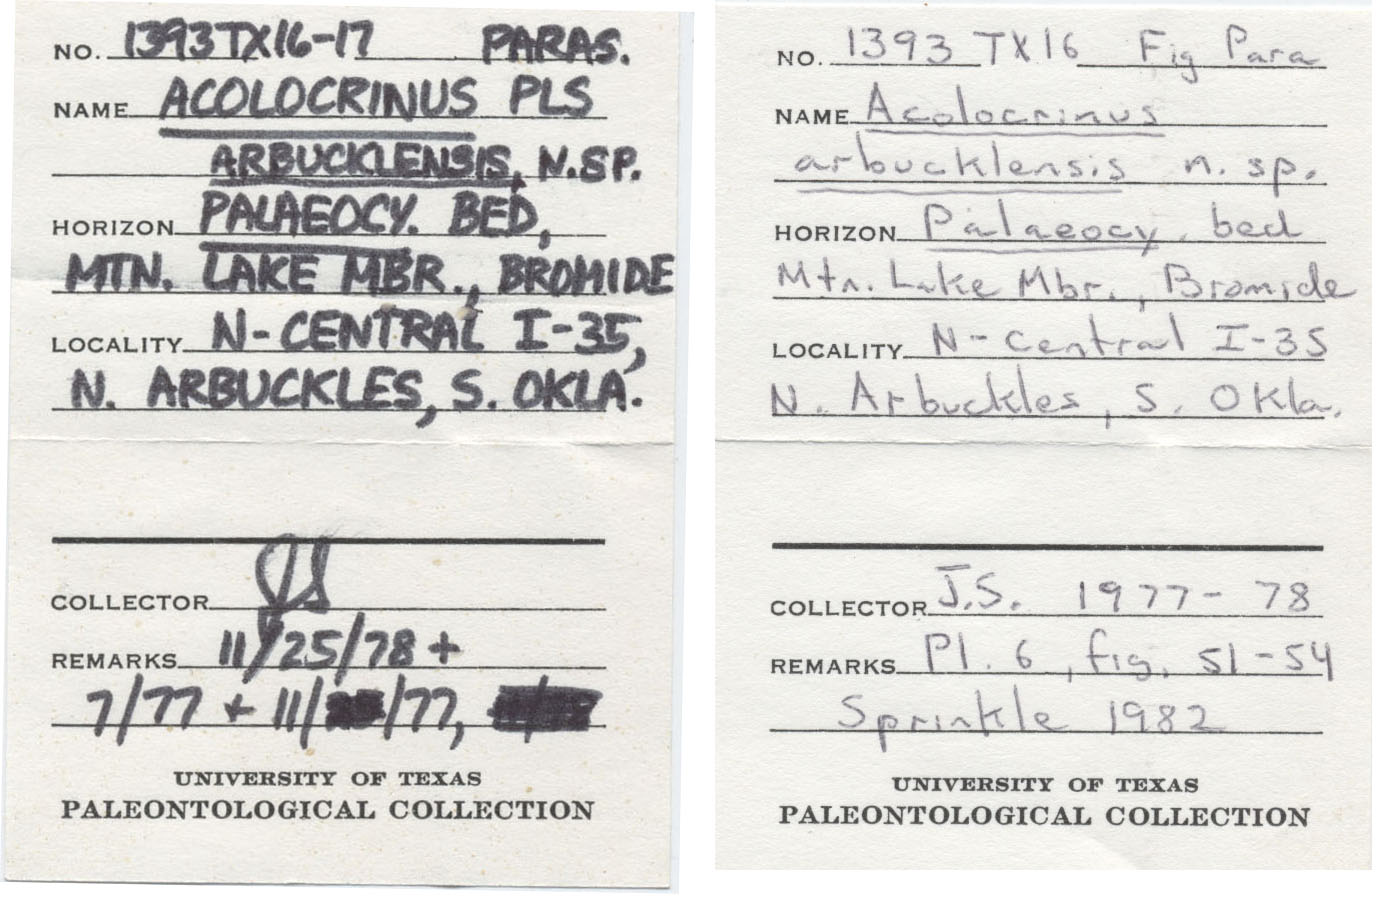 NO. 1393TX16-17 PARAS.
NAME ACOLOCRINUS PLS
ARBUCKLENSIS, N.SP.
HORIZON PALAEOCY. BED,
MTN. LAKE MBR., BROMIDE
LOCALITY N-CENTRAL I-35,
N. ARBUCKLES, S. OKLA.
COLLECTOR JS
REMARKS 11/25/78 +
7/77 + 11/ /77,
UNIVERSITY OF TEXAS
PALEONTOLOGICAL COLLECTION
NO. 1393 TX16 Fig Para
NAME Acolocrinus
arbucklensis n. sp.
HORIZON Palaeocy. bed
Mtn. Lake Mbr., Bromide
LOCALITY N-Central I-35
N. Arbuckles, S. Okla.
COLLECTOR J.S. 1977-78
REMARKS Pl. 6, fig. 51-54
Sprinkle 1982
UNIVERSITY OF TEXAS
PALEONTOLOGICAL COLLECTION